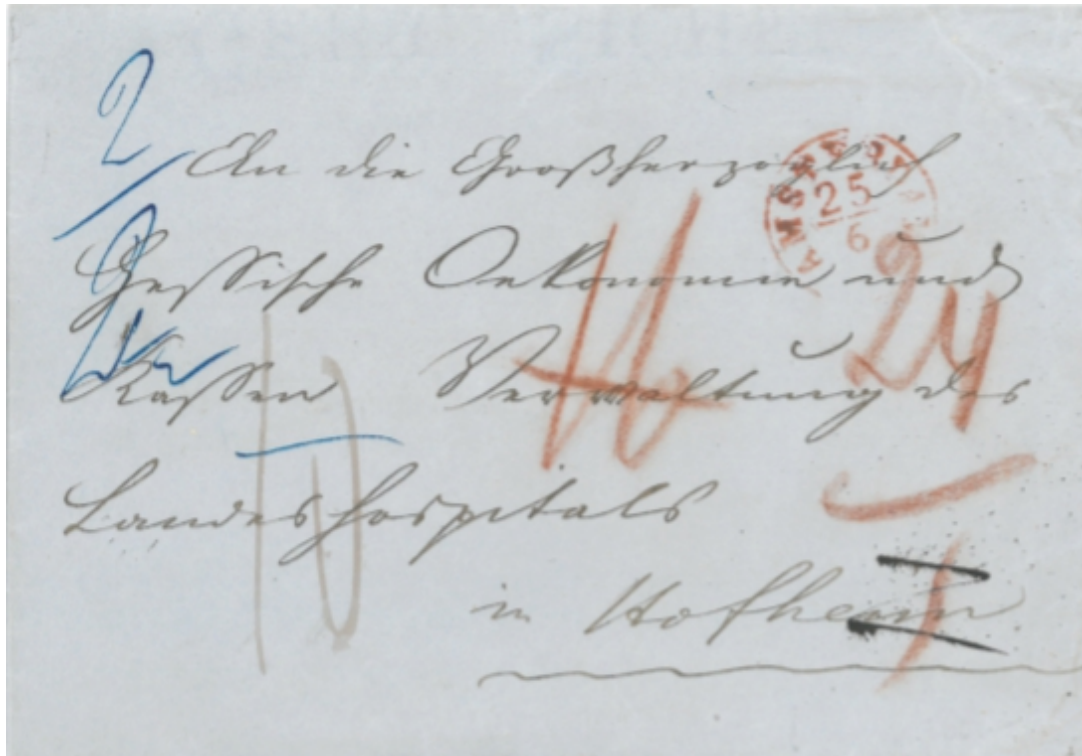 An die Großherzoglich
Hessische Oekonomie und
Kassen Verwaltung des
Landeshospitals
in Hofheim
25
6
24